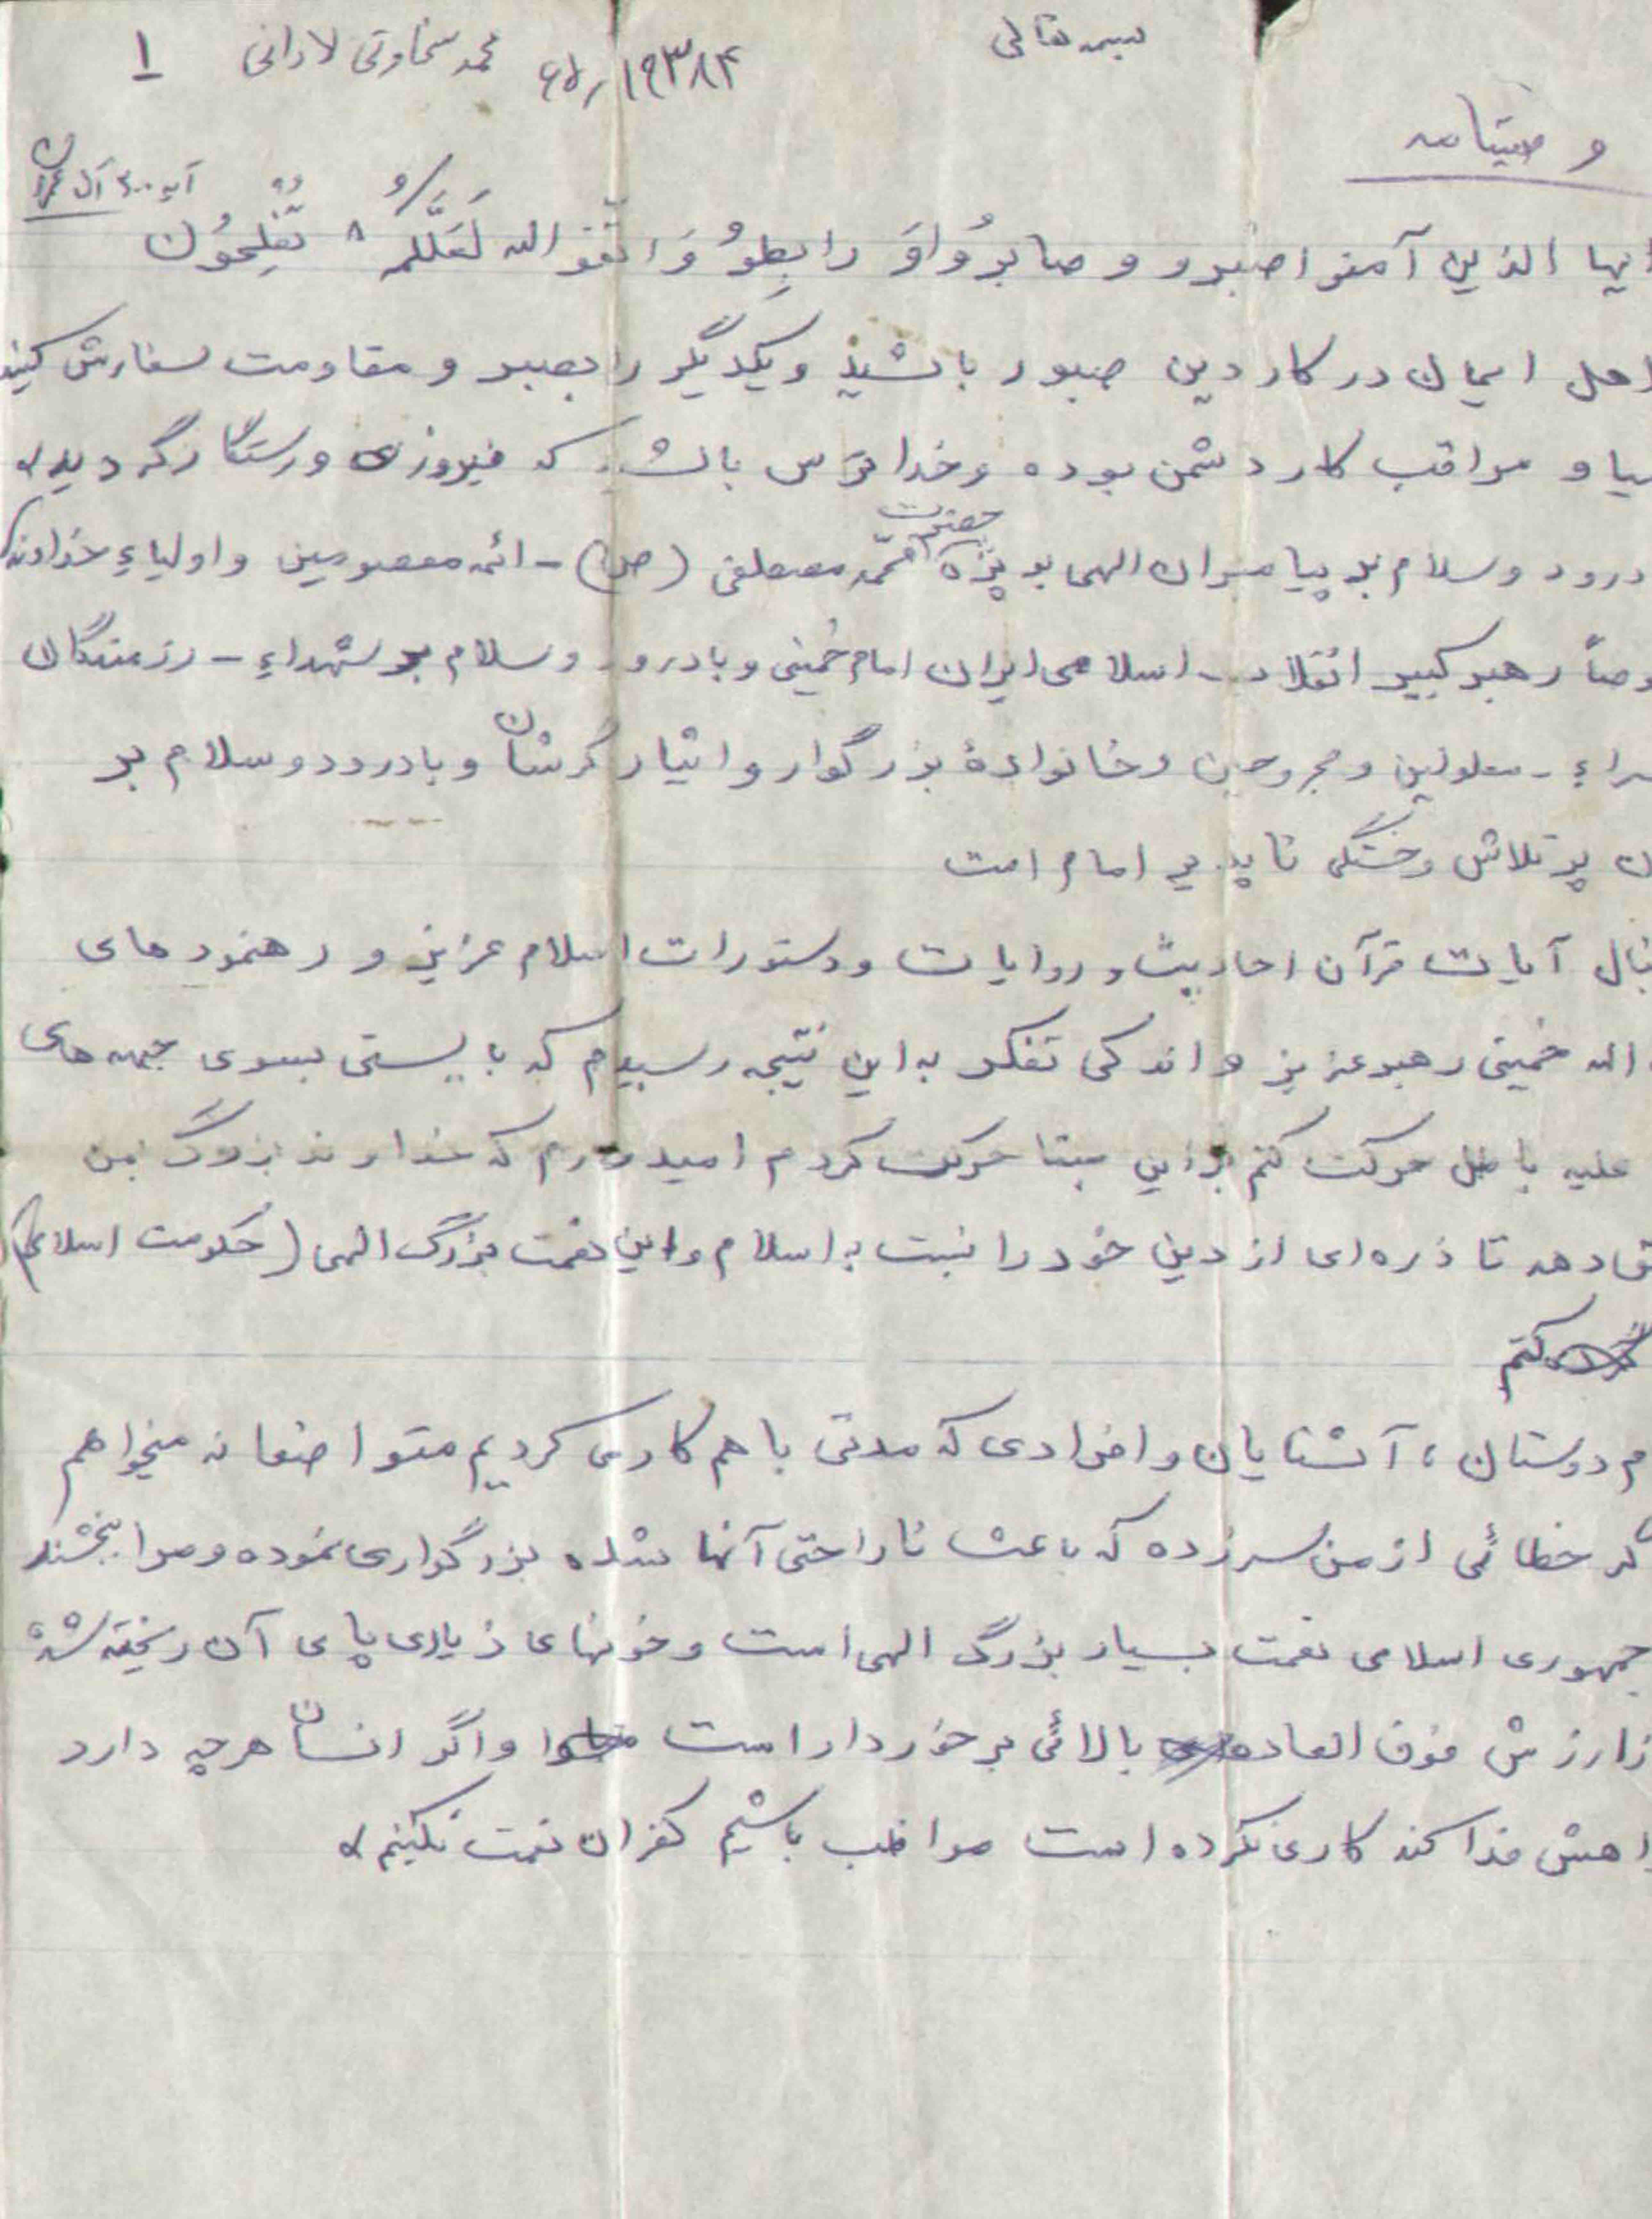 بسمه تعالی
۶۵/۱۹۳۸۴ محمد سخاوتی لادانی ۱
وصیتنامه
آیه ۲۰۰ آل عمران
ایها الذین آمنو اصبرو و صابرُواوَ رابِطوُ وَ اتّقو الله لَعَلَّکُم تُفْلِحُون
اهل ایمان در کار دین صبور باشید و یکدیگر را بصبر و مقاومت سفارش کنید
و مراقب کار دشمن بوده و خدا ترس باشید که فیروز و رستگار گردید.
درود و سلام بر پیامبران الهی بویژه حضرت محمّد مصطفی (ص) - ائمه معصومین و اولیاءِ خداوند
وصاً رهبر کبیر انقلاب اسلامی ایران امام خُمینی و با درود و سلام بر شهداءِ - رزمندگان
سراءِ - معلولین و مجروحین و خانوادهٔ بزرگوار و ایثارگرشان و با درود و سلام بر
ن پر تلاش و خستگی ناپذیر امام امت
نبال آیات قرآن احادیث و روایات و دستورات اسلام عزیز و رهنمودهای
الله خمینی رهبر عزیز و اندکی تفکر به این نتیجه رسیدم که بایستی بسوی جبهه های
علیه باطل حرکت کنم بر این مبنا حرکت کردم امیدوارم که خداوند بزرگ بمن
ق دهد تا ذره‌ای از دین خود را نسبت به اسلام و این نعمت بزرگ الهی (حکومت اسلامی)
کنم
م دوستان، آشنایان و افرادی که مدتی با هم کار می کردیم متواضعانه میخواهم
گر خطائی از من سرزده که باعث ناراحتی آنها شده بزرگواری نموده و مرا ببخشند
جمهوری اسلامی نعمت بسیار بزرگ الهی است و خونهای زیادی پای آن ریخته شده
از ارزش فوق العاده بالائی برخوردار است و اگر انسان هر چه دارد
راهش فدا کند کاری نکرده است مواظب باشیم کفران نعمت نکنیم.